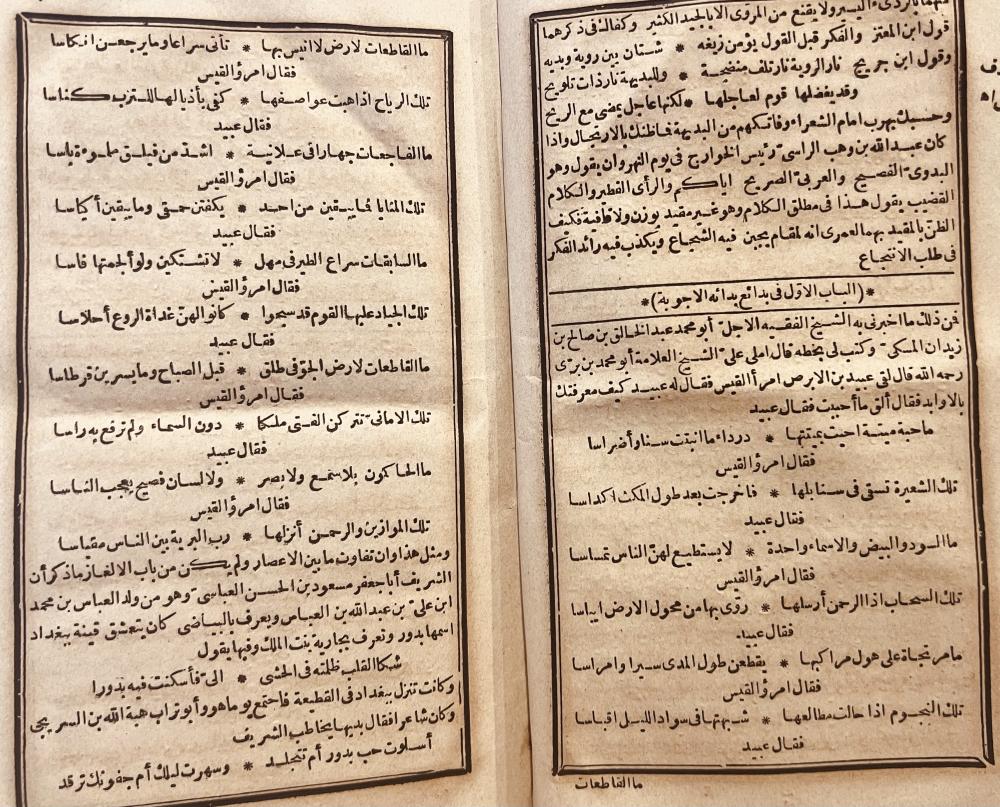 منهما بالردىء اليسير ولا يقنع من المروى الا بالجيد الكثير وكفاك فى ذكرهما
قول ابن المعتز والفكر قبل القول يؤمن زيغه * شتان بين روية وبديه
وقول ابن جريج نار الروية نار تلف منضجة * وللبديهة نار ذات تلويح
وقد يفضلها قوم لعاجلها * لكنها عاجل يمضى مع الريح
وحسبك بهرب امام الشعراء وفاتكهم من البديهة فما ظنك بالارتجال واذا
كان عبد الله بن وهب الراسى رئيس الخوارج فى يوم النهروان يقول وهو
البدوى الفصيح والعربى الصريح اياكم والرأى الفطير والكلام
القضيب يقول هذا فى مطلق الكلام وهو غير مقيد بوزن ولا قافية فكيف
الظن بالمقيد بهما لعمرى انه لمقام يجبن فيه الشجاع ويكذب فيه رائد الفكر
فى طلب الانتجاع
*(الباب الاول فى بدائع بدائه الاجوبة)*
فمن ذلك ما اخبرنى به الشيخ الفقيه الاجل أبو محمد عبد الخالق بن صالح بن
زيدان المسكى وكتب لى بخطه قال املى على الشيخ العلامة أبو محمد بن برى
رحمه الله قال لقى عبيد بن الابرص امرأ القيس فقال له عبيد كيف معرفتك
بالاوابد فقال ألق ما أحببت فقال عبيد
ما حية ميتة احيت بميتتها * درداء ما انبتت سنا وأضراسا
فقال امرؤ القيس
تلك الشعيرة تسقى فى سنابلها * فاخرجت بعد طول المكث اكداسا
فقال عبيد
ما السود والبيض والاسماء واحدة * لا يستطيع لهن الناس تمساسا
فقال امرؤ القيس
تلك السحاب اذا الرحمن أرسلها * روى بها من محول الارض ايباسا
فقال عبيد
ما مرتجاة على هول مراكبها * يقطعن طول المدى سيرا وامراسا
فقال امرؤ القيس
تلك النجوم اذا حالت مطالعها * شبهتها فى سواد الليل اقباسا
فقال عبيد
ما القاطعات
ما القاطعات لارض لا انيس بها * تأتى سراعا وما يرجعن انكاسا
فقال امرؤ القيس
تلك الرياح اذا هبت عواصفها * كفى بأذيالها للترب كناسا
فقال عبيد
ما الفاجعات جهارا فى علانية * اشد من فيلق مملوءة باسا
فقال امرؤ القيس
تلك المنايا فما يبقين من احد * يكفتن حمقى وما يبقين أكياسا
فقال عبيد
ما السابقات سراع الطير فى مهل * لا تشتكين ولو ألجمتها فاسا
فقال امرؤ القيس
تلك الجياد عليها القوم قد سبحوا * كانوا لهن غداة الروع أحلاسا
فقال عبيد
ما القاطعات لارض الجو فى طلق * قبل الصباح وما يسرين قرطاسا
فقال امرؤ القيس
تلك الامانى تتركن الفتى ملكا * دون السماء ولم ترفع به راسا
فقال عبيد
ما الحاكمون بلا سمع ولا بصر * ولا لسان فصيح يعجب الناسا
فقال امرؤ القيس
تلك الموازين والرحمن أنزلها * رب البرية بين الناس مقياسا
ومثل هذا وان تفاوت ما بين الاعصار ولم يكن من باب الالغاز ما ذكر أن
الشريف أبا جعفر مسعود بن الحسن العباسى وهو من ولد العباس بن محمد
ابن على بن عبد الله بن العباس ويعرف بالبياضى كان يتعشق قينة ببغداد
اسمها بدور وتعرف بجارية بنت الملك وفيها يقول
شكا القلب ظلمته فى الحشى * الى فأسكنت فيه بدورا
وكانت تنزل ببغداد فى القطيعة فاجتمع يوما هو وأبو تراب هبة الله بن السريجى
وكان شاعرا فقال بديها يخاطب الشريف
أسلوت حب بدور أم تتجلد * وسهرت ليلك أم جفونك ترقد